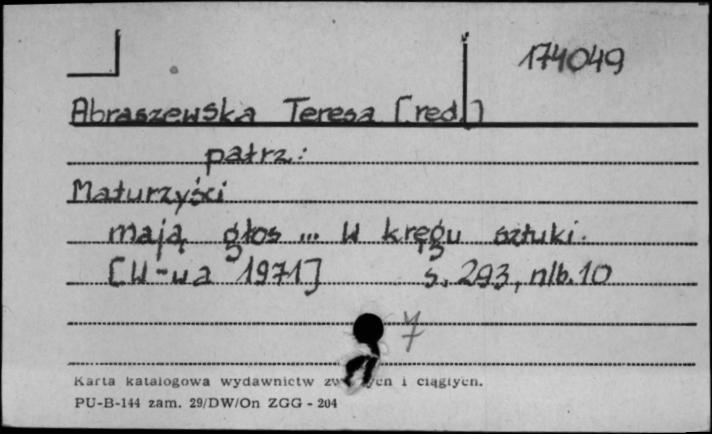 174049
Abraszewska Teresa [red.]
patrz:
Maturzyści
mają głos ... W kręgu sztuki.
[W-wa 1971] s. 293, nlb. 10
7
Karta katalogowa wydawnictw i ciągłych.
PU-B-144 zam. 29/DW/On ZGG - 204